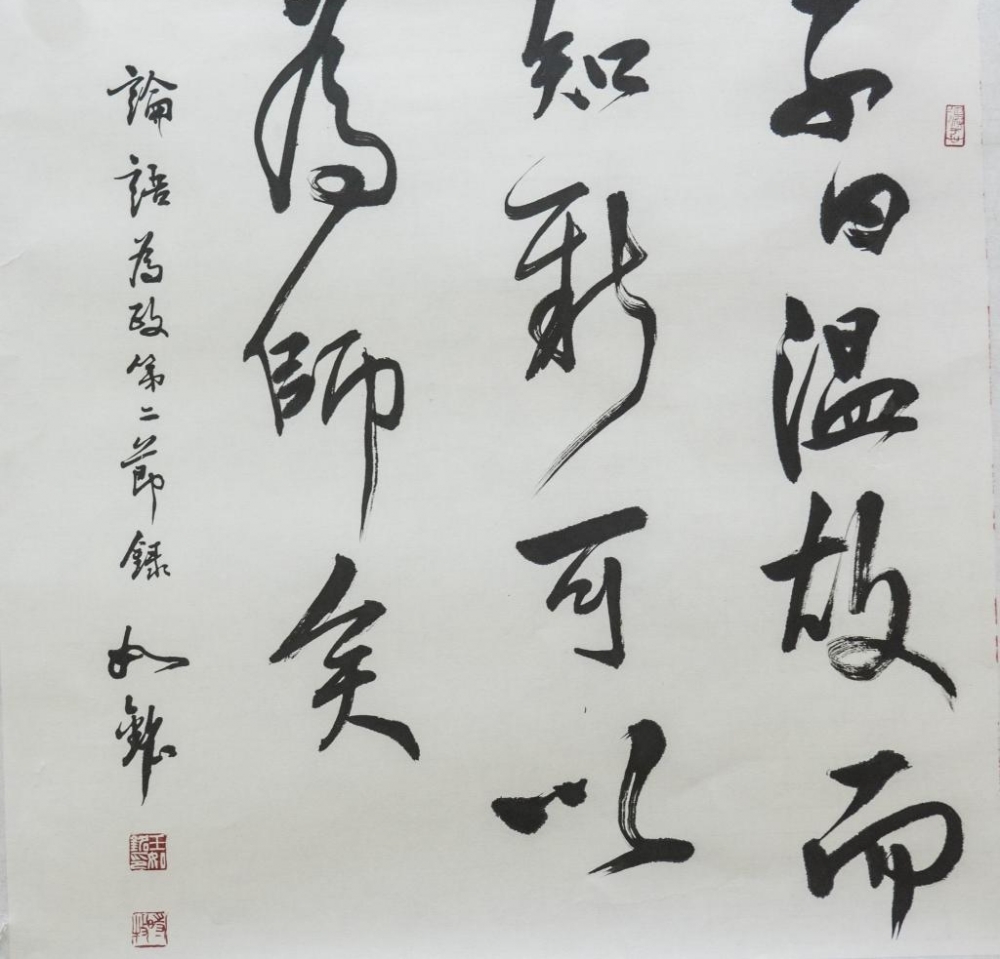 子曰温故而
知新可以
為師矣
論語為政第二節録 如